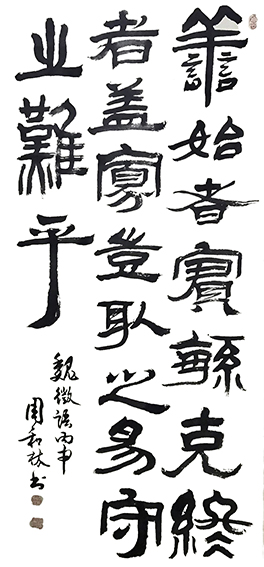 譱始者實緐克終
者盖寡豈取之易守
之難乎
魏徵語丙申
周和林书